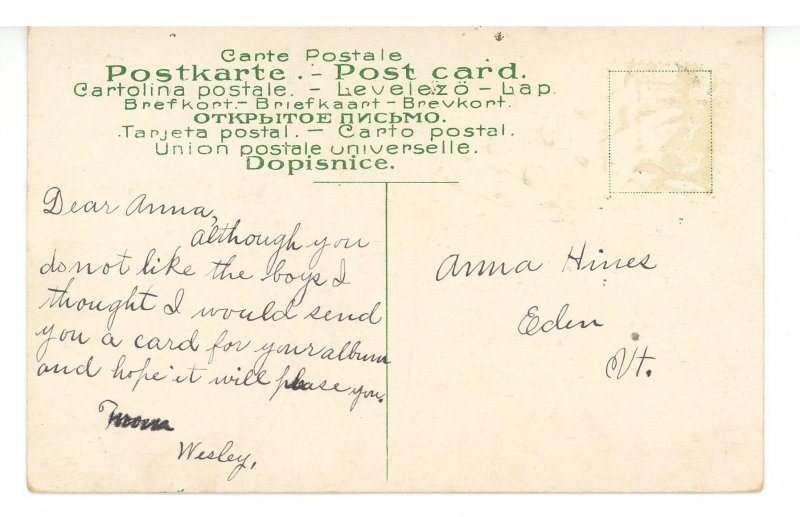 Carte Postale
Postkarte. - Post card.
Cartolina postale. - Levelező - Lap.
Brefkort.- Briefkaart - Brevkort.
ОТКРЫТОЕ ПИСЬМО.
Tarjeta postal. - Carto postal.
Union postale universelle.
Dopisnice.
Dear Anna,
although you
do not like the boys I
thought I would send
you a card for your album
and hope it will please you.
From
Wesley,
Anna Hines
Eden
Vt.